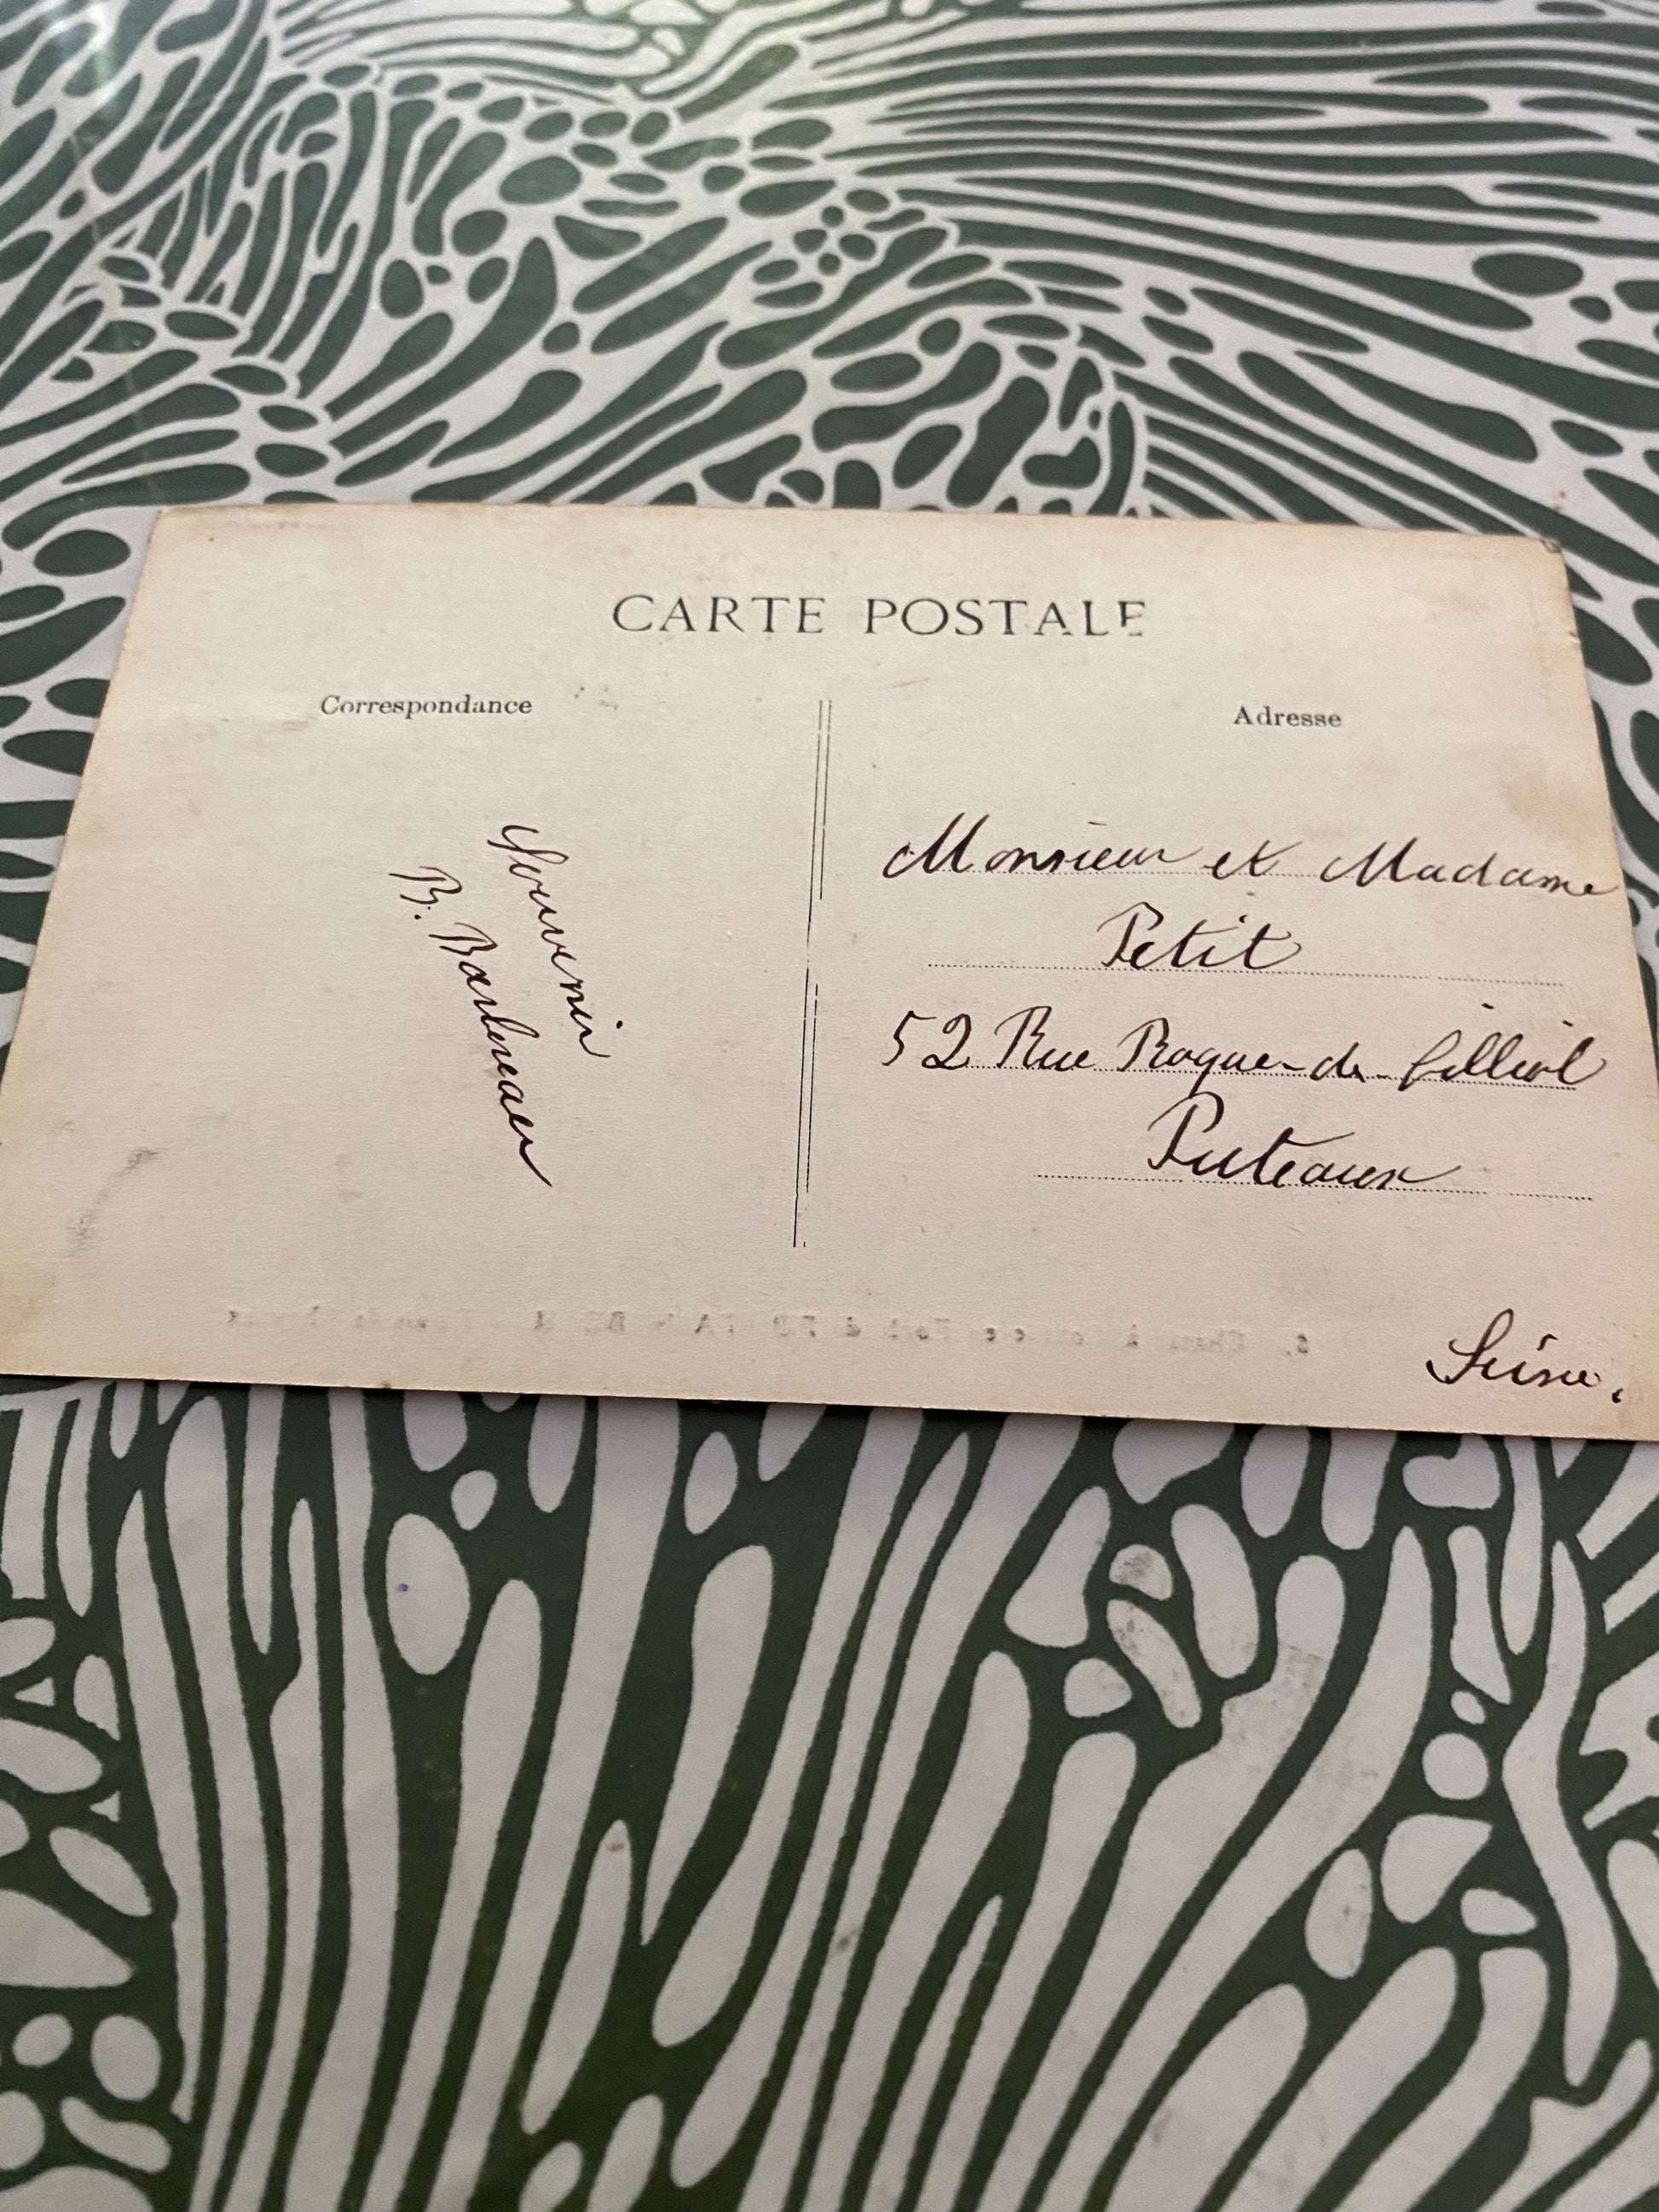 CARTE POSTALE
Correspondance
Souvenir
B. Barbreau
Adresse
Monsieur et Madame
Petit
52 Rue Roque-de-Filliol
Puteaux
Seine.